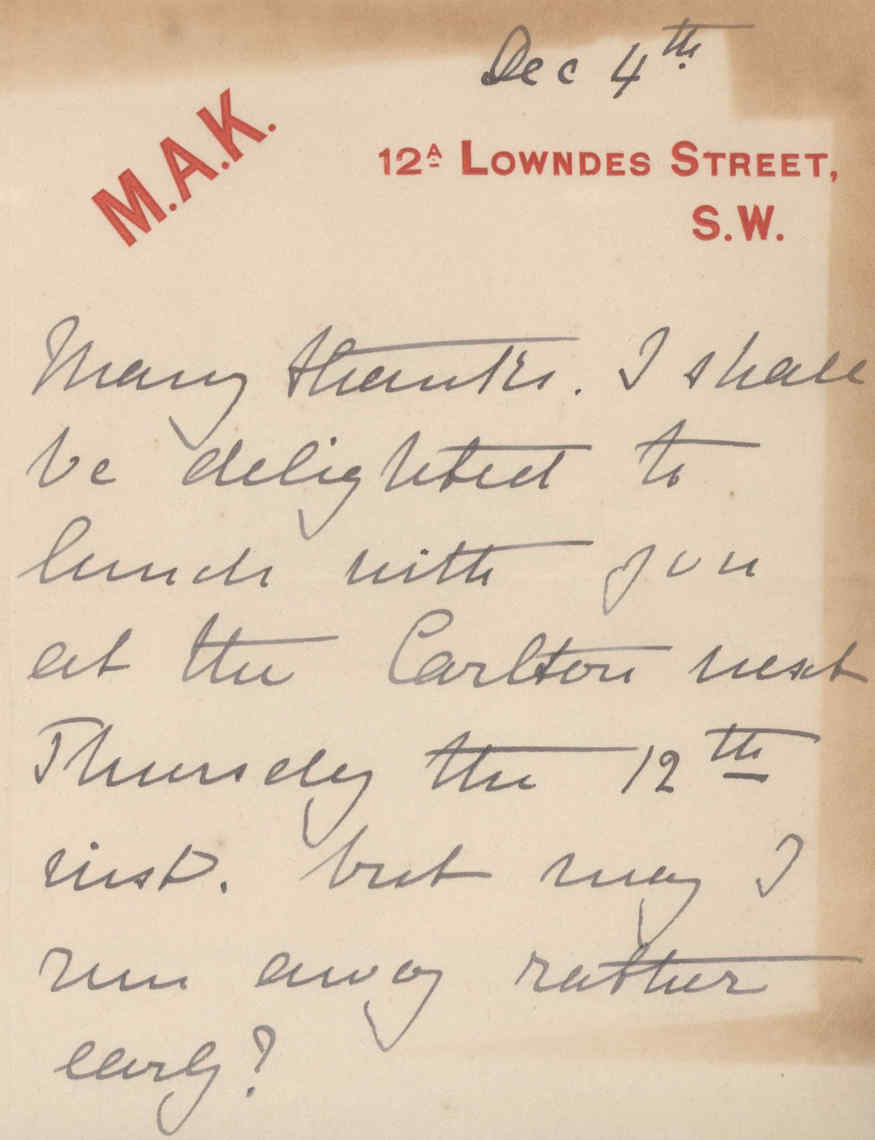 Dec 4th.
M.A.K.
12A Lowndes Street,
S.W.
Many thanks. I shall
be delighted to
lunch with you
at the Carlton next
Thursday the 12th
inst. but may I
run away rather
early?